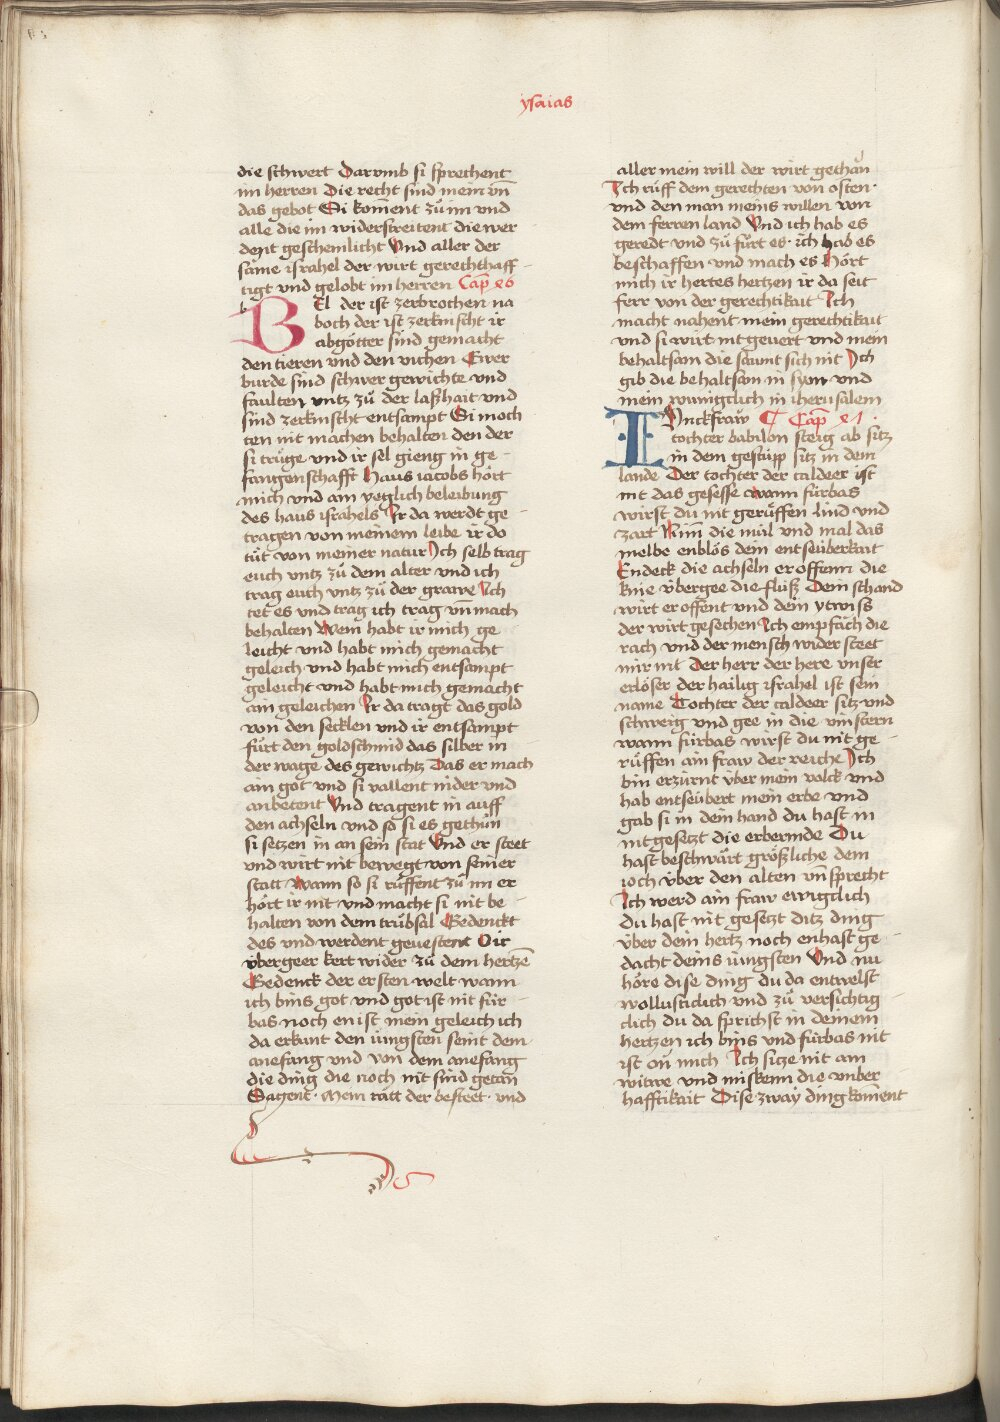 ysaias
die schwert Darvmb si sprechent
im herren Die recht sind mein vn̄
das gebot Si kom̄ent zů im vnd
alle die im widerstreitent die wer
dent geschemlicht Vnd aller der
same israhel der wirt gerechthaff¬
tigt vnd gelobt im herren Cap̄ 46
BEl der ist zerbrochen na
boch der ist zerknischt ir
abgötter sind gemacht
den tieren vnd den vichen Ewer
burde sind schwer gewichte vnd
faulten vntz zů der laßhait vnd
sind zerknischt entsampt Si moch
ten nit machen behalten den der
si trůge vnd ir sel gieng in ge¬
fangenschafft Haus iacobs hört
mich vnd ain yeglich beleibung
des haus israhels Ir da werdt ge¬
tragen von meinem leibe ir do
tůt von meiner natur Ich selb trag
euch vntz zů dem alter vnd ich
trag euch vntz zů der grawe Ich
tet es vnd trag ich trag vn̄ mach
behalten Wem habt ir mich ge
leicht vnd habt mich gemacht
geleich vnd habt mich entsampt
geleicht vnd habt mich gemacht
ain geleichen Ir da tragt das gold
von den secklen vnd ir entsampt
fürt den goldschmid das silber in
der wage des gewichtz Das er mach
ain got vnd si vallent nider vnd
anbetent Vnd tragent in auff
den achseln vnd so si es gethůn
si setzen in an sein stat Vnd er steet
vnd wirt nit bewegt von seiner
statt Wann so si růffent zů im er
hört ir nit vnd macht si nit be¬
halten von dem trübsal Gedenckt
des vnd werdent geuestent Dir
vbergeer kert wider zů dem hertzē
Gedenck der ersten welt wann
ich bins got vnd got ist nit für¬
bas noch en ist mein geleich ich
da erkant den iüngsten seint dem
anefang vnd von dem anefang
die ding die noch nit sind getan
Sagent · Mein ratt der besteet · vnd
aller mein will der wirt gethan
Ich rüff dem gerechten von osten ·
vnd den man meins willen von
dem ferren land Vnd ich hab es
geredt vnd zů fürt es · ich hab es
beschaffen vnd mach es Hört
mich ir hertes hertzen ir da seit
ferr von der gerechtikait Ich
macht nahent mein gerechtikait
vnd si wirt nit geuert vnd mein
behaltsam die saumt sich nit Ich
gib die behaltsam in syon vnd
mein wuniglich in iherusalem
IVnckfraw Cap̄ 47
tochter babilon steig ab sitz
in dem gestüpp sitz in dem
lande Der tochter der caldeer ist
nit das gesesse wann fürbas
wirst du nit gerüffen lind vnd
zart Nim̄ die mül vnd mal das
melbe enblös dein entseüberkait
Endeck die achseln eroffenn die
knie vbergee die flüß Dein schand
wirt eroffent vnd dein ytwiss
der wirt gesechen Ich empfach die
rach vnd der mensch wider steet
mir nit Der herr der here vnser
erlöser der hailig israhel ist sein
name Tochter der caldeer sitz vnd
schweig vnd gee in die vinstern
wann fürbas wirst du nit ge¬
rüffen ain fraw der reiche Ich
bin erzürnt vber mein volck vnd
hab entseübert mein erbe vnd
gab si in dein hand du hast in
nit gesetzt die erbermde Du
hast beschwärt größliche dem
ioch vber den alten vn̄ sprecht
Ich werd ain fraw ewigclich
du hast nit gesetzt ditz ding
vber dein hertz noch en hast ge¬
dacht deins iüngsten Vnd nu
höre dise ding du da entwelst
wollusticlich vnd zů versichtig¬
clich du da sprichst in deinem
hertzen ich bins vnd fürbas nit
ist on mich Ich sitze nit ain
witwe vnd misken̄ die vnber
hafftikait Dise zway ding kom̄ent